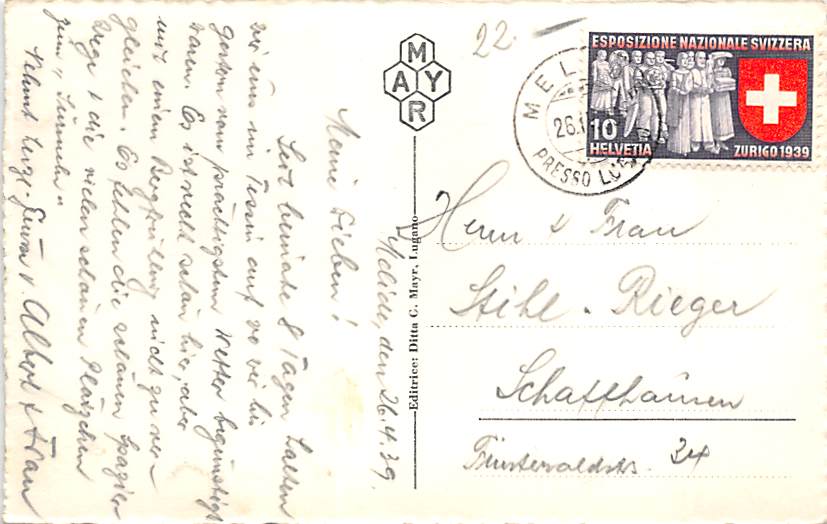 Melide, den 26.4.39.
Meine Lieben!
Seit beinahe 8 Tagen halten
wir uns im Tessin auf wo wir bis
gestern vom prächtigsten Wetter begünstigt
waren. Es ist recht schön hier, aber
mit einem Bergfrühling nicht zu ver-
gleichen. Es fehlen die schönen Spazier
wege & die vielen schönen Plätzchen
zum
Albert & Frau
22.
MAYR
ESPOSIZIONE NAZIONALE SVIZZERA
10
HELVETIA
ZURIGO 1939
MEL
26.
PRESSO LU
Editrice: Ditta C. Mayr, Lugano
Herrn & Frau
Stihl - Rieger
Schaffhausen
34